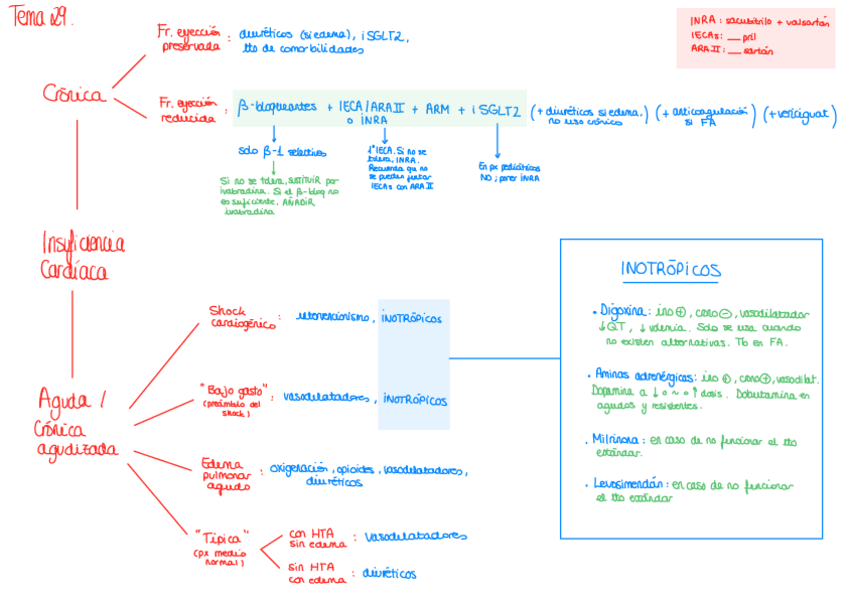 Tema 29.
INRA: sacubitrilo + valsartán
IECAs: __ pril
ARAII: __ sartán
Crónica
Fr. eyección
preservada
: diuréticos (si edema), iSGLT2,
tto de comorbilidades
Fr. eyección
reducida
: β-bloqueantes + IECA/ARAII + ARM + iSGLT2
o INRA
(+ diuréticos si edema,
no uso crónico)
(+ anticoagulación
si FA)
(+ vericiguat)
solo β-1 selectivos
Si no se tolera, SUSTITUIR por
ivabradina. Si el β-bloq no
es suficiente, AÑADIR
ivabradina
1º IECA. Si no se
tolera, INRA.
Recuerda que no
se pueden juntar
IECAs con ARAII
En px pediátricos
NO; poner INRA
Insuficiencia
Cardíaca
Aguda /
Crónica
agudizada
Shock
cardiogénico
: intervencionismo, INOTRÓPICOS
"Bajo gasto"
(preámbulo del
shock)
: vasodilatadores, INOTRÓPICOS
Edema
pulmonar
agudo
: oxigenación, opioides, vasodilatadores,
diuréticos
"Típica"
(px medio
normal)
con HTA
sin edema
: vasodilatadores
sin HTA
con edema
: diuréticos
INOTRÓPICOS
• Digoxina: ino ⊕, crono ⊖, vasodilatador
↓QT, ↓ volemia. Solo se usa cuando
no existen alternativas. Tb en FA.
• Aminas adrenérgicas: ino ⊕, crono ⊕, vasodilat.
Dopamina a ↓ o ~ o ↑ dosis. Dobutamina en
agudos y resistentes.
• Milrinona: en caso de no funcionar el tto
estándar.
• Levosimendán: en caso de no funcionar
el tto estándar